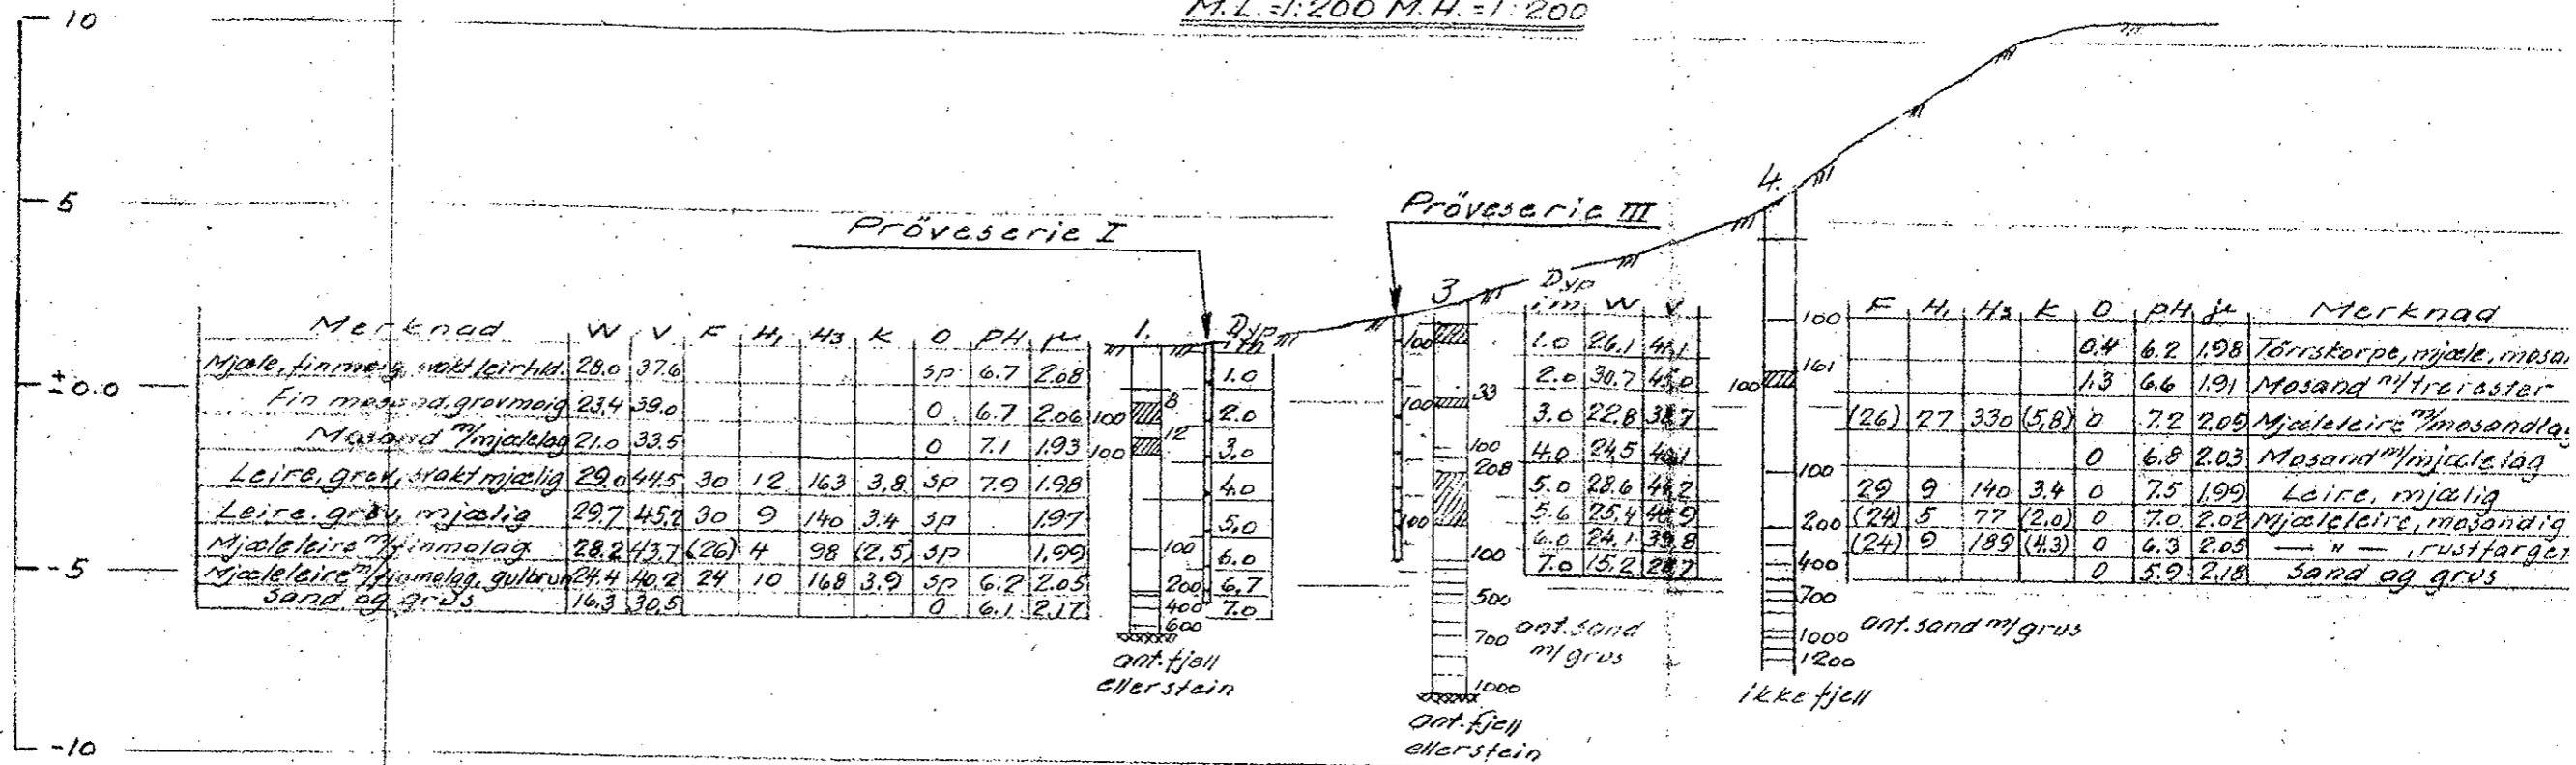 M.L.=1:200 M.H.=1:200
10
5
±0.0
-5
-10
Pröveserie I
Pröveserie III
Merknad W V F H1 H3 K O PH μ
Mjæle, finmoig, svakt leirhld. 28.0 37.6 sp 6.7 2.08
Fin mosand, grovmoig 23.4 39.0 0 6.7 2.06
Mosand m/mjælelag 21.0 33.5 0 7.1 1.93
Leire, grov, svakt mjælig 29.0 44.5 30 12 163 3.8 sp 7.9 1.98
Leire, grov, mjælig 29.7 45.2 30 9 140 3.4 sp 1.97
Mjæleleire m/finmolag 28.2 43.7 (26) 4 98 (2.5) sp 1.99
Mjæleleire m/finmolag, gulbrun 24.4 40.2 24 10 168 3.9 sp 6.2 2.05
Sand og grus 16.3 30.5 0 6.1 2.17
1.
8
100
12
100
100
200
400
600
ant. fjell
eller stein
Dyp
i m
1.0
2.0
3.0
4.0
5.0
6.0
6.7
7.0
3
100
33
100
100
208
100
100
500
700
1000
ant. sand
m/grus
ant. fjell
eller stein
Dyp
i m W V
1.0 26.1
2.0 30.7 45.0
3.0 22.8
4.0 24.5
5.0 28.6
5.6 25.4
6.0 24.1 39.8
7.0 15.2
4.
100
161
100
100
200
400
700
1000
1200
ant. sand m/grus
ikke fjell
F H1 H3 K O pH μ Merknad
0.4 6.2 1.98 Törrskorpe, mjæle, mosa
1.3 6.6 1.91 Mosand m/trerester
(26) 27 330 (5,8) 0 7.2 2.05 Mjæleleire m/mosandlag
0 6.8 2.03 Mosand m/mjælelag
29 9 140 3.4 0 7.5 1.99 Leire, mjælig
(24) 5 77 (2.0) 0 7.0 2.02 Mjæleleire, mosandig
(24) 9 189 (4.3) 0 6.3 2.05 — " — , rustfarget
0 5.9 2.18 Sand og grus